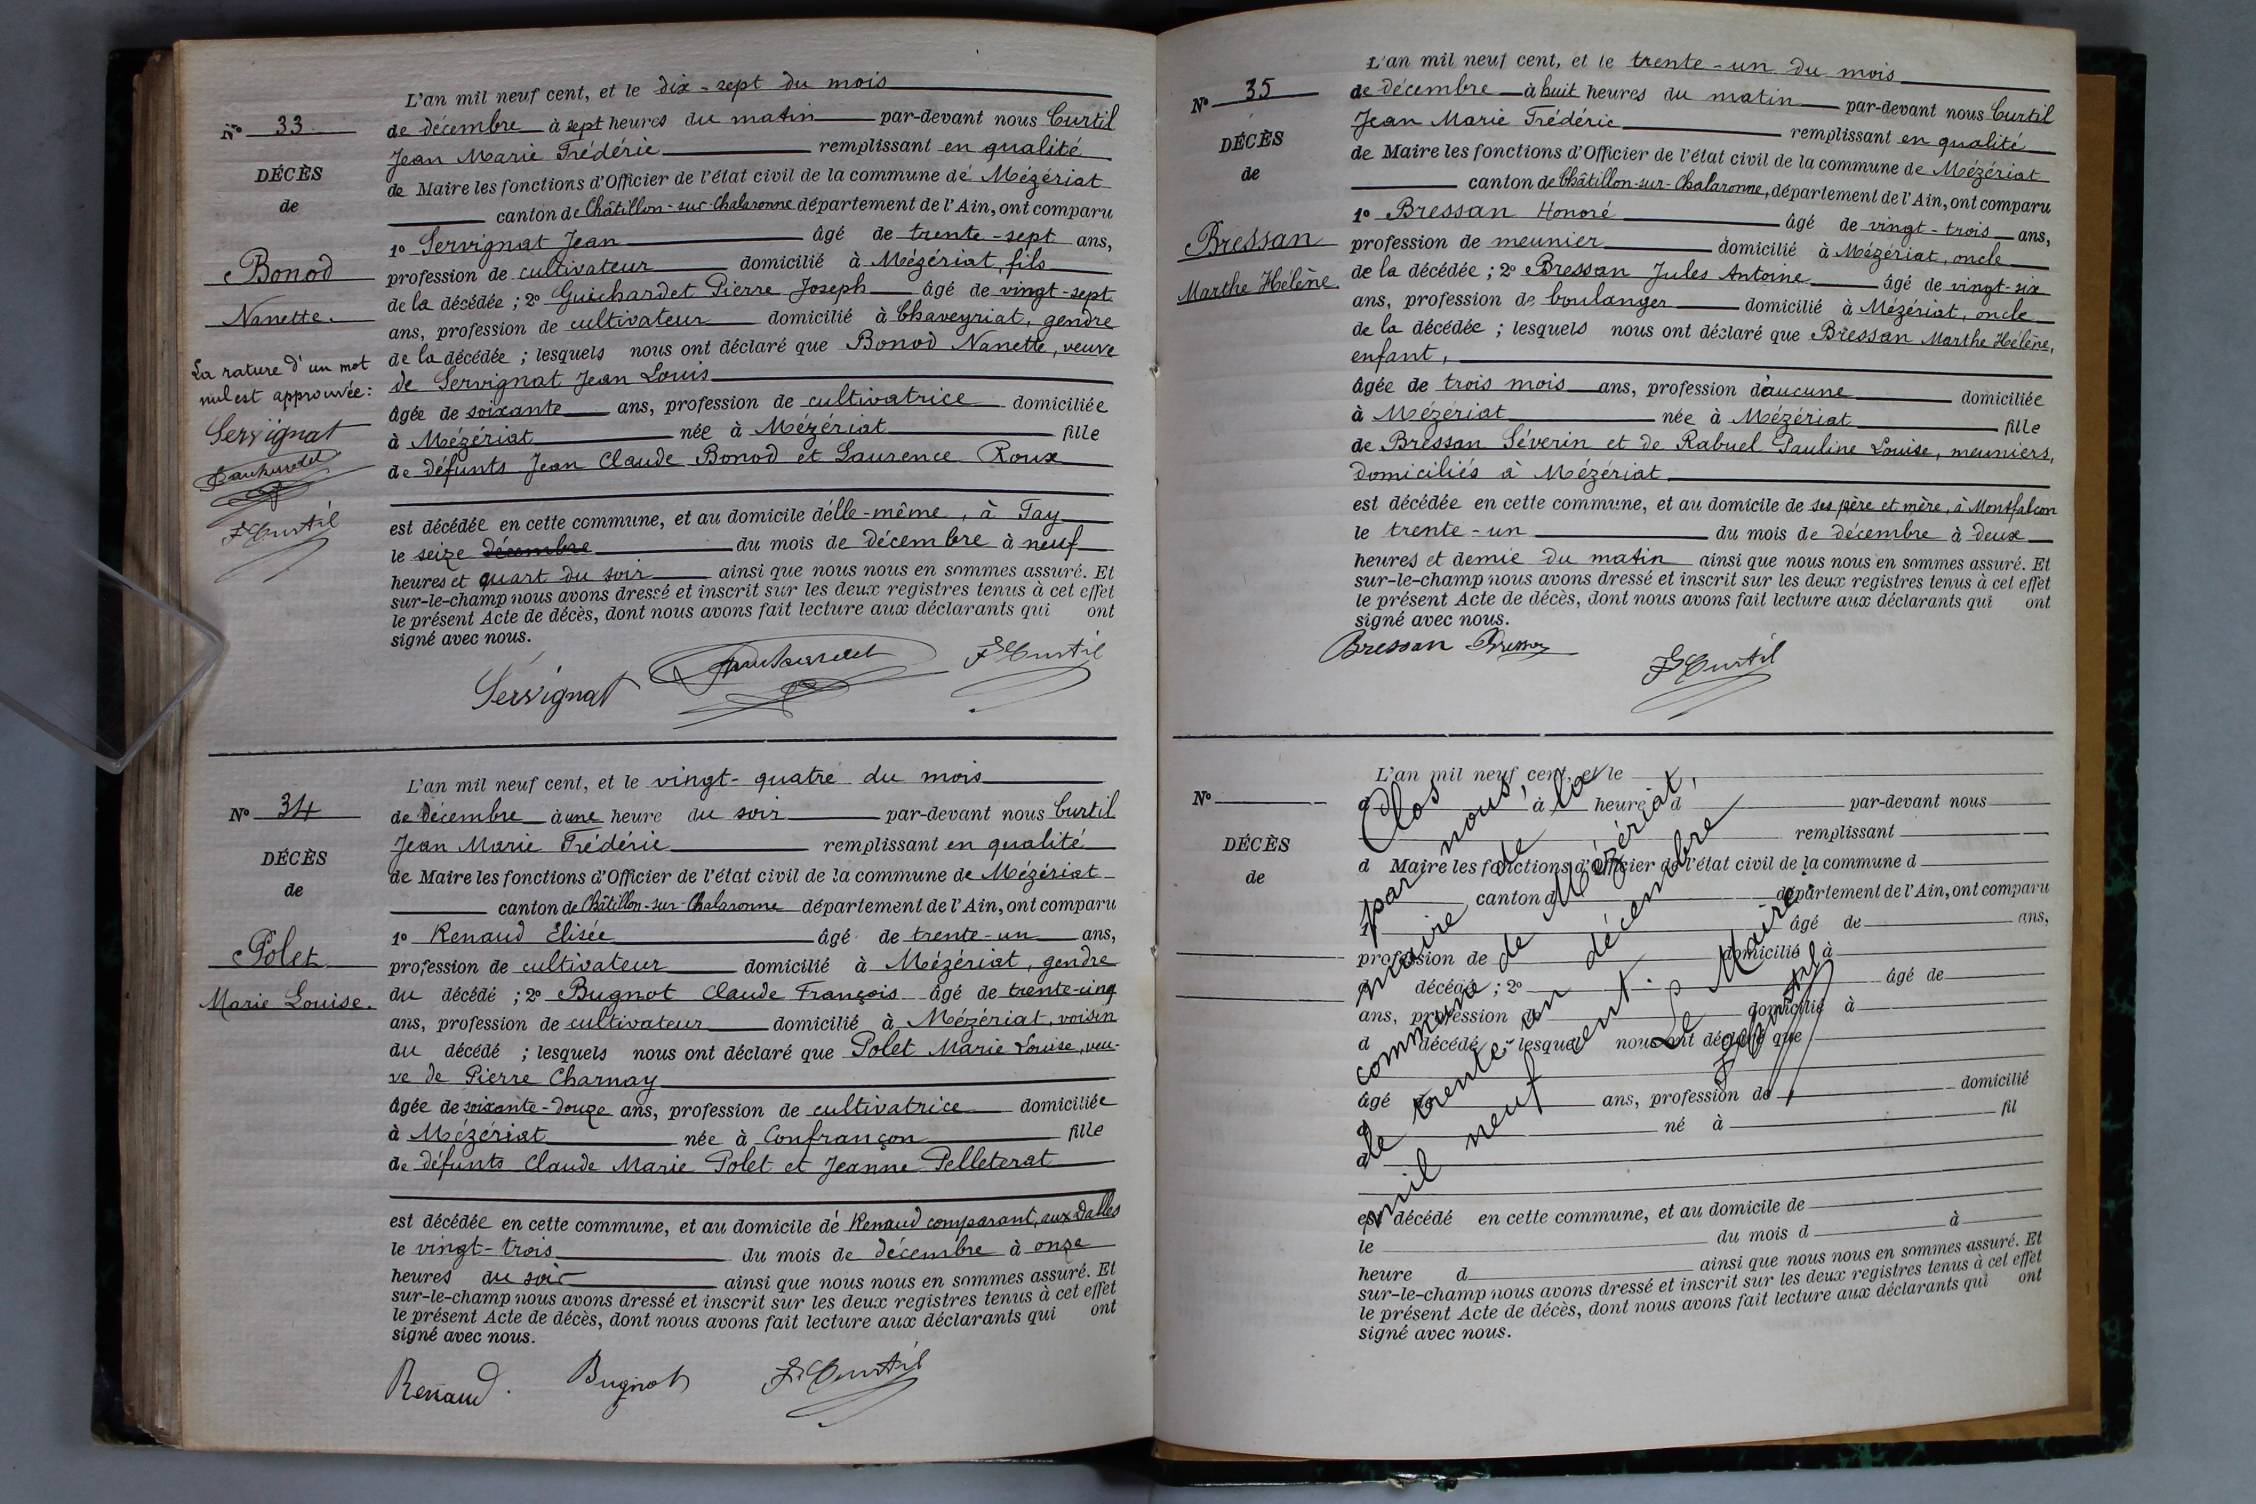 Nº 33
DÉCÈS
de
Bonod
Nanette.
La rature d'un mot
nul est approuvée :
Servignat
F. Curtil
L'an mil neuf cent, et le dix-sept du mois
de décembre à sept heures du matin par-devant nous Curtil
Jean Marie Frédéric remplissant en qualité
de Maire les fonctions d'Officier de l'état civil de la commune de Mézériat
canton de Châtillon-sur-Chalaronne département de l'Ain, ont comparu
1º Servignat Jean âgé de trente-sept ans,
profession de cultivateur domicilié à Mézériat, fils
de la décédée ; 2º Guichardet Pierre Joseph âgé de vingt-sept
ans, profession de cultivateur domicilié à Chaveyriat, gendre
de la décédée ; lesquels nous ont déclaré que Bonod Nanette, veuve
de Servignat Jean Louis
âgée de soixante ans, profession de cultivatrice domiciliée
à Mézériat née à Mézériat fille
de défunts Jean Claude Bonod et Laurence Roux
est décédée en cette commune, et au domicile d'elle-même, à Tay
le seize décembre du mois de décembre à neuf
heures et quart du soir ainsi que nous nous en sommes assuré. Et
sur-le-champ nous avons dressé et inscrit sur les deux registres tenus à cet effet
le présent Acte de décès, dont nous avons fait lecture aux déclarants qui ont
signé avec nous.
Servignat F. Curtil
Nº 34
DÉCÈS
de
Polet
Marie Louise.
L'an mil neuf cent, et le vingt-quatre du mois
de décembre à une heure du soir par-devant nous Curtil
Jean Marie Frédéric remplissant en qualité
de Maire les fonctions d'Officier de l'état civil de la commune de Mézériat
canton de Châtillon-sur-Chalaronne département de l'Ain, ont comparu
1º Renaud Elisée âgé de trente-un ans,
profession de cultivateur domicilié à Mézériat, gendre
du décédé ; 2º Bugnot Claude François âgé de trente-cinq
ans, profession de cultivateur domicilié à Mézériat, voisin
du décédé ; lesquels nous ont déclaré que Polet Marie Louise, veu-
ve de Pierre Charnay
âgée de soixante-douze ans, profession de cultivatrice domiciliée
à Mézériat née à Confrançon fille
de défunts Claude Marie Polet et Jeanne Pelleterat
est décédée en cette commune, et au domicile de Renaud comparant, aux Dalles
le vingt-trois du mois de décembre à onze
heures du soir ainsi que nous nous en sommes assuré. Et
sur-le-champ nous avons dressé et inscrit sur les deux registres tenus à cet effet
le présent Acte de décès, dont nous avons fait lecture aux déclarants qui ont
signé avec nous.
Renaud. Bugnot F. Curtil
Nº 35
DÉCÈS
de
Bressan
Marthe Hélène.
L'an mil neuf cent, et le trente-un du mois
de décembre à huit heures du matin par-devant nous Curtil
Jean Marie Frédéric remplissant en qualité
de Maire les fonctions d'Officier de l'état civil de la commune de Mézériat
canton de Châtillon-sur-Chalaronne, département de l'Ain, ont comparu
1º Bressan Honoré âgé de vingt-trois ans,
profession de meunier domicilié à Mézériat, oncle
de la décédée ; 2º Bressan Jules Antoine âgé de vingt-six
ans, profession de boulanger domicilié à Mézériat, oncle
de la décédée ; lesquels nous ont déclaré que Bressan Marthe Hélène,
enfant,
âgée de trois mois ans, profession d'aucune domiciliée
à Mézériat née à Mézériat fille
de Bressan Séverin et de Rabuel Pauline Louise, meuniers,
domiciliés à Mézériat
est décédée en cette commune, et au domicile de ses père et mère, à Montfalcon
le trente-un du mois de décembre à deux
heures et demie du matin ainsi que nous nous en sommes assuré. Et
sur-le-champ nous avons dressé et inscrit sur les deux registres tenus à cet effet
le présent Acte de décès, dont nous avons fait lecture aux déclarants qui ont
signé avec nous.
Bressan Bressan F. Curtil
Nº
DÉCÈS
de
L'an mil neuf cent, et le
d à heure d par-devant nous
remplissant
d Maire les fonctions d'Officier de l'état civil de la commune d
canton d département de l'Ain, ont comparu
1º âgé de ans,
profession de domicilié à
d décédé ; 2º âgé de
ans, profession d domicilié à
d décédé ; lesquels nous ont déclaré que
âgé de ans, profession de domicilié
à né à fil
d
est décédé en cette commune, et au domicile de
le du mois d à
heure d ainsi que nous nous en sommes assuré. Et
sur-le-champ nous avons dressé et inscrit sur les deux registres tenus à cet effet
le présent Acte de décès, dont nous avons fait lecture aux déclarants qui ont
signé avec nous.
Clos
par nous,
maire de la
commune de Mézériat,
le trente-un décembre
mil neuf cent.
Le Maire :
F. Curtil